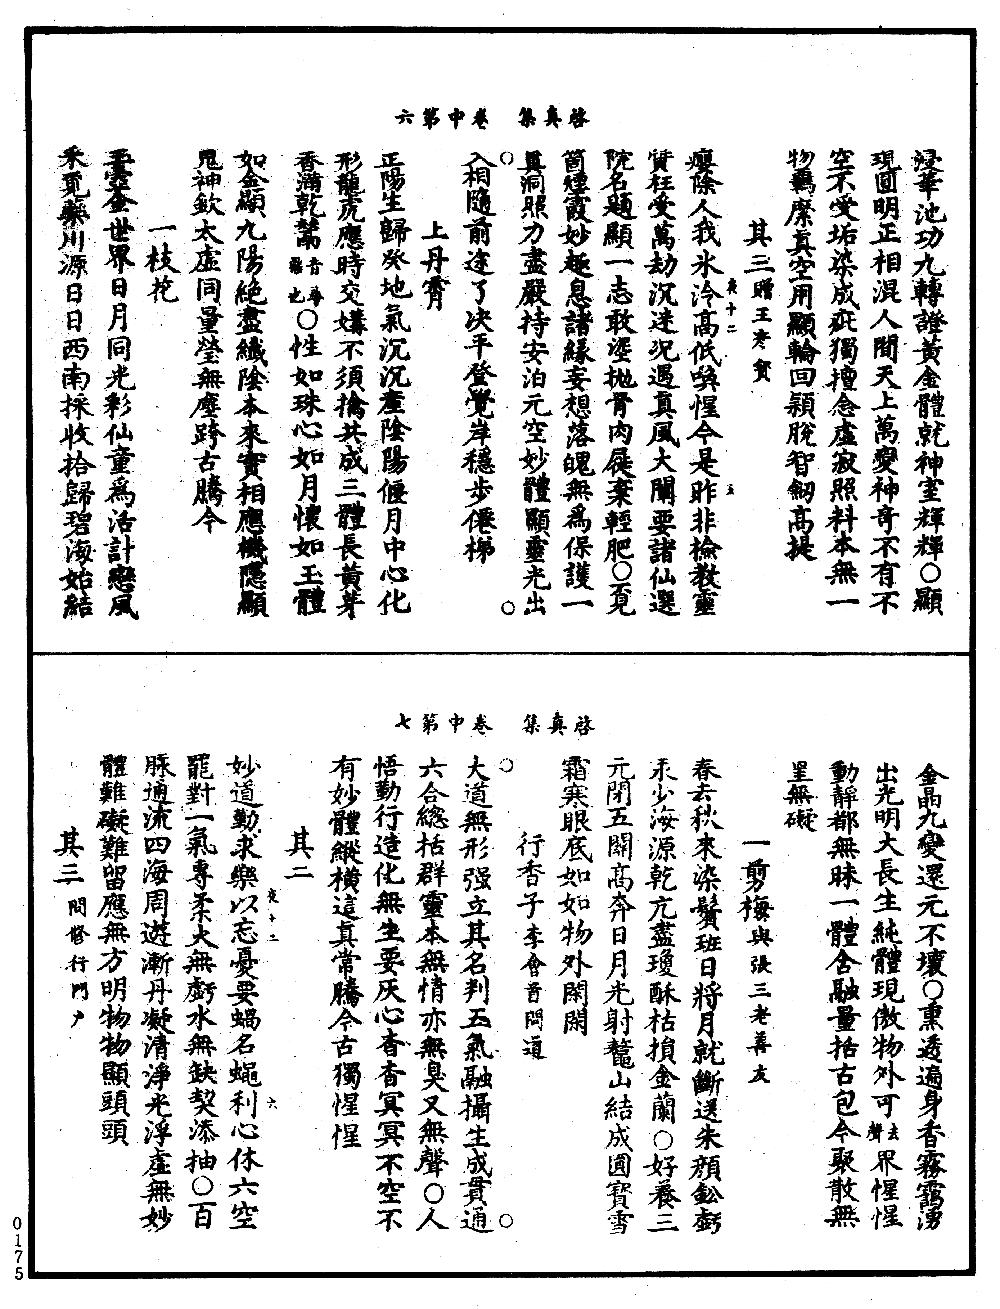 啓真集　卷中第六
浸華池功九轉證黃金體就神室輝輝○顯
現圓明正相混人間天上萬變神奇不有不
空不受垢染成疵獨擅念虛寂照料本無一
物羈縻真空用顯輪回頴脫智劒高提
其三贈王老賀
癭除人我氷冷高低喚惺今是昨非檢教靈
質枉受萬劫沉迷况遇真風大闡要諸仙選
院名題顯一志敢濹抛骨肉屣棄輕肥○覓
箇煙霞妙趣息諸緣妄想落魄無爲保護一
真洞照力盡嚴持安泊元空妙體顯靈光出
入相隨前途了决平登覺岸穩步僊梯
上丹霄
正陽生歸癸地氣沉沉產陰陽偃月中心化
形龍虎應時交媾不須擒共成三體長黃芽
香滿乾○性如珠心如月懷如玉體
如金顯九陽絶盡纖陰本來實相應機隱顯
鬼神欽太虛同量瑩無塵跨古騰今
一枝花
金世界日月同光彩仙童爲活計戀風
釆覓藥川源日日西南採收拾歸碧海始結
啓真集　卷中第七
金晶九變還元不壞○熏透遍身香霧靄湧
出光明大長生純體現傲物外可去聲界惺惺
動靜都無昧一體舍融量括古包今聚散無
罣無礙
一剪梅與張三老善友
春去秋來染鬢班日將月就斷送朱顏鈆虧
汞少海源乾亢盡瓊酥枯損金蘭○好養三
元閉五關高奔日月光射鼇山結成圓寶雪
霜寒眼底如如物外閑閑
行香子李會首問道
大道無形强立其名判五氣融攝生成貫通
六合總括群靈本無情亦無臭又無聲○人
悟勤行造化無生要灰心杳杳冥冥不空不
有妙體縱橫這真常騰今古獨惺惺
其二
妙道勤求樂以忘憂要蝸名蠅利心休六空
罷對一氣專柔大無虧水無缺契添抽○百
脉通流四海周遊漸丹凝清淨光浮虛無妙
體難礙難留應無方明物物顯頭頭
其三問修行門户
0175